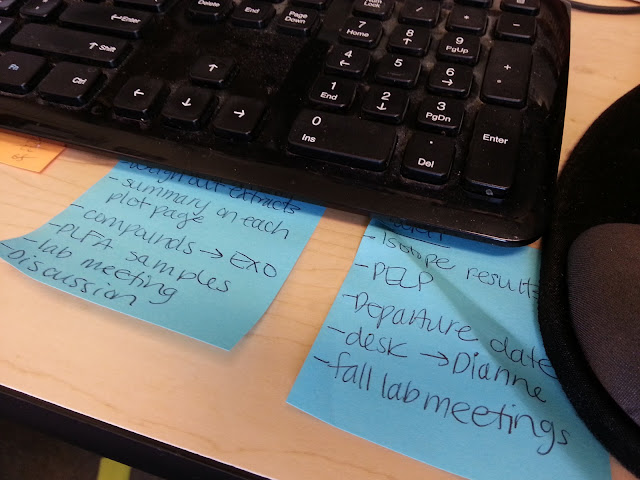 Delete
End
Page Down
Lock
/
*
-
7 Home
8
9 PgUp
+
Enter
4
5
6
Shift
1 End
2
3 PgDn
Enter
Fn
Ctrl
0 Ins
. Del
extracts
- summary on each
plot page
- compounds → EXO
- PLFA samples
- lab meeting
- Discussion
- Isotope results
- PELP
- Departure date
- desk → Dianne
- fall lab meetings